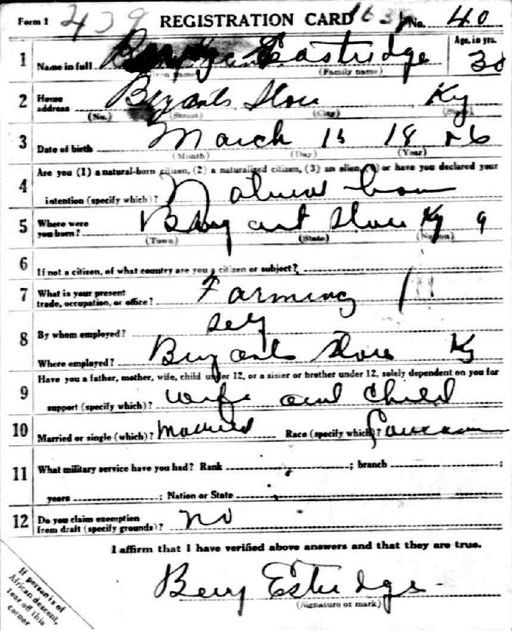 Form 1 439 REGISTRATION CARD No. 40
1 Name in full Eastridge Age, in yrs. 30
(Family name)
2 Home address Bryants Store Ky
(No.) (Street) (City)
3 Date of birth March 15 18
(Month) (Day) (Year)
4 Are you (1) a natural-born citizen, (2) a naturalized citizen, (3) an alien, (4) or have you declared your
intention (specify which)? Natural born
5 Where were you born? Bryant Store Ky
(Town) (State) (Nation)
6 If not a citizen, of what country are you a citizen or subject?
7 What is your present trade, occupation, or office? Farming
8 By whom employed? Self
Where employed? Bryants Store Ky
9 Have you a father, mother, wife, child under 12, or a sister or brother under 12, solely dependent on you for
support (specify which)? wife and child
10 Married or single (which)? Married Race (specify which)? Caucasian
11 What military service have you had? Rank ; branch ;
years ; Nation or State
12 Do you claim exemption from draft (specify grounds)? no
I affirm that I have verified above answers and that they are true.
Estridge
(Signature or mark)
If person is of
African descent,
tear off this
corner